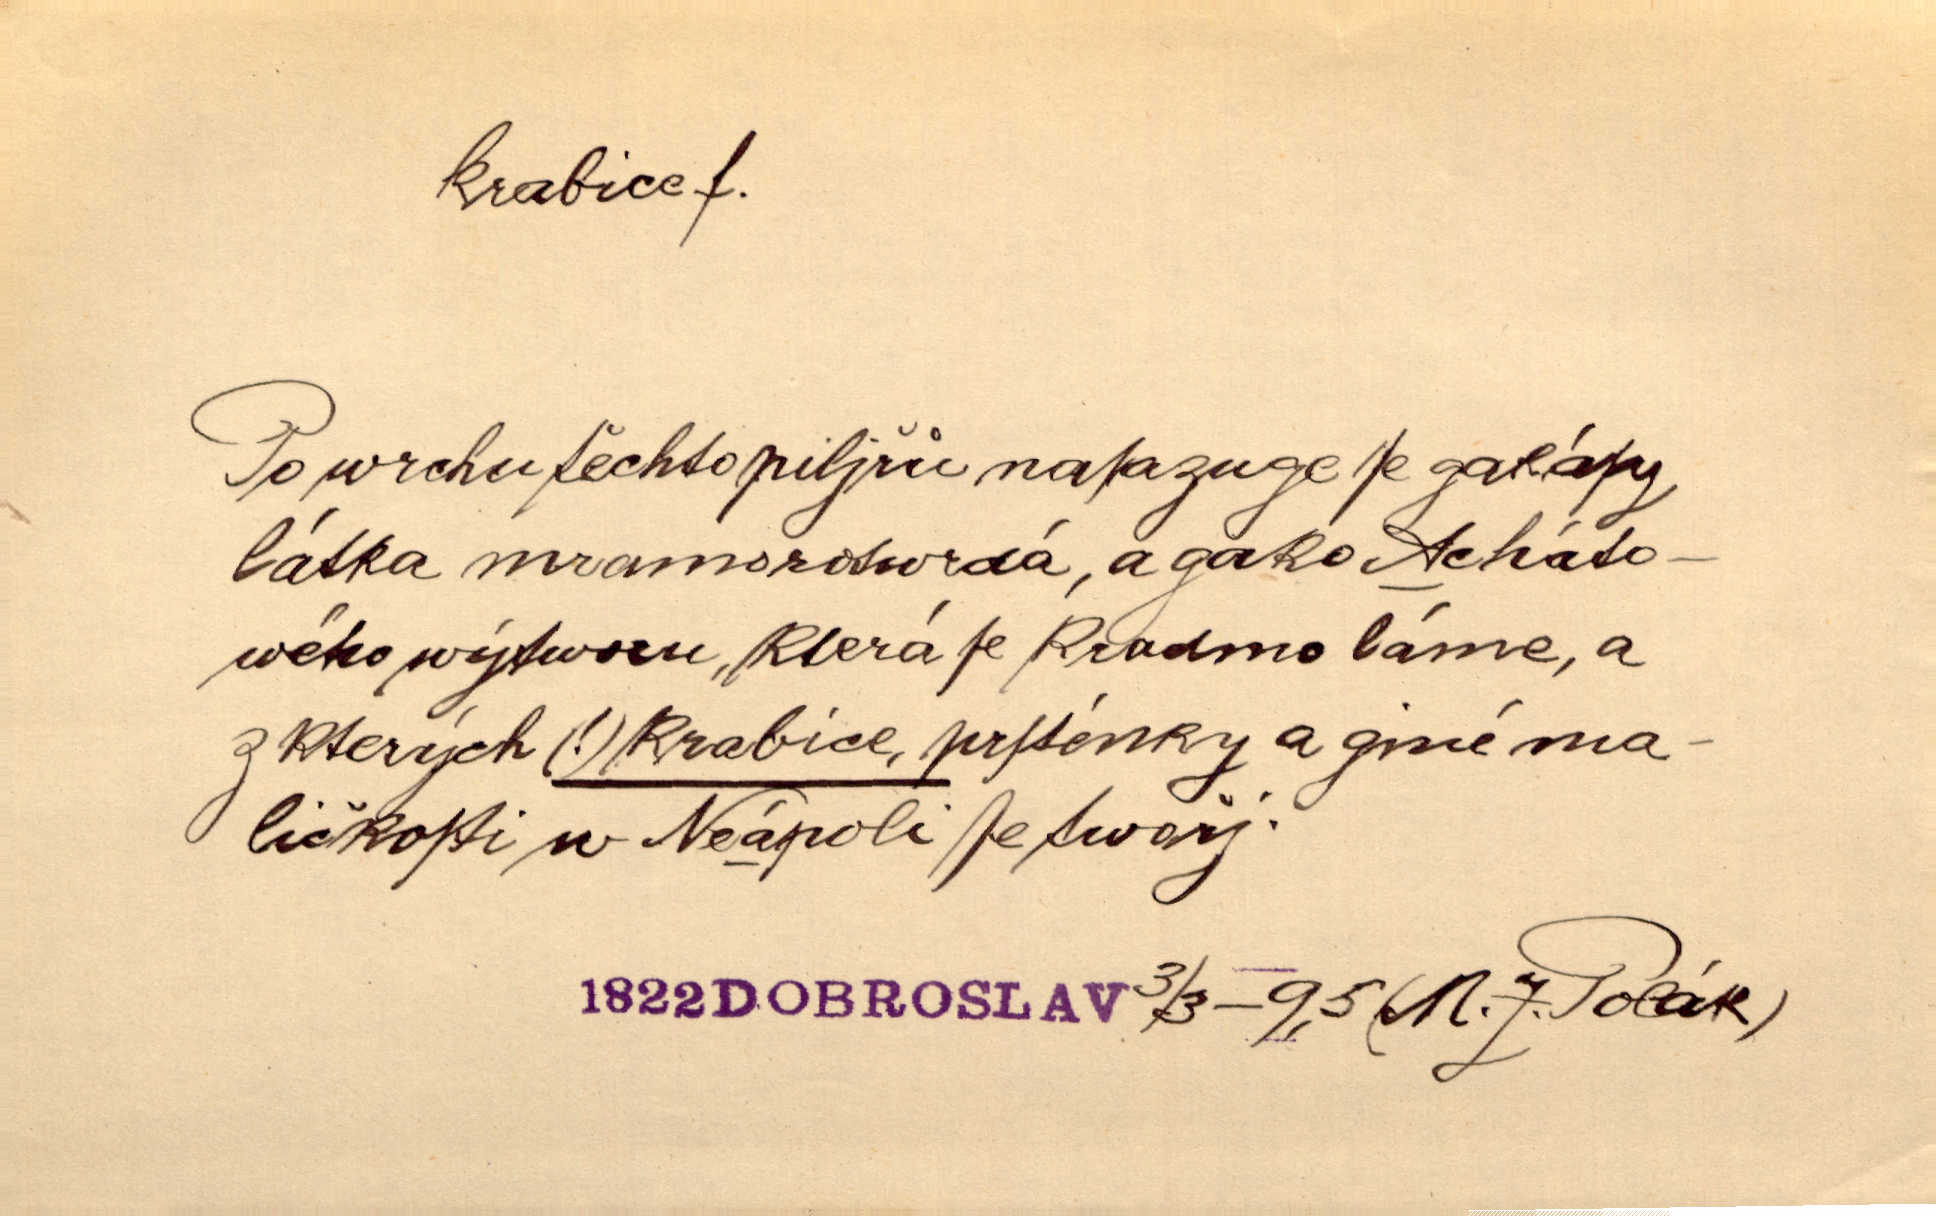 krabice f.
Po wrchu těchto piljřů naſazuge ſe gakáſy
látka mramorotwrdá, a gako Acháto-
wého wýtworu, která ſe kradmo láme, a
z kterých (!) krabice, prſténky a giné ma-
ličkoſti w Neápoli ſe twořj.
1822 DOBROSLAV 3/3 – 95 (M. Z. Polák)